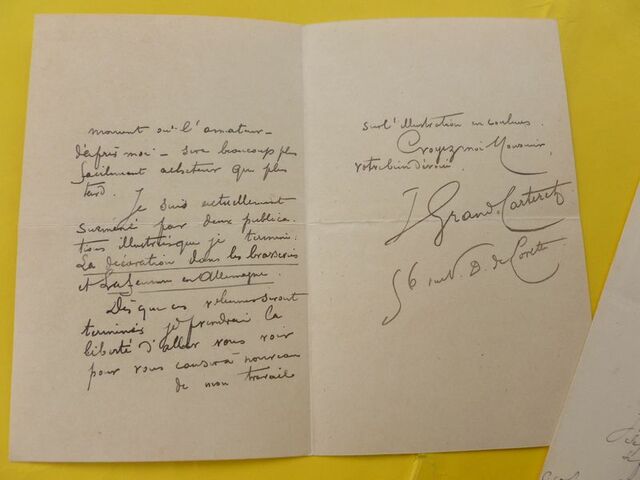 moment où l'amateur –
d'après moi – sera beaucoup plus
facilement acheteur que plus
tard.
Je suis actuellement
surmené par deux publica-
tions illustrées que je termine:
La décoration dans les brasseries
et La femme en Allemagne.
Dès que ces volumes seront
terminés je prendrai la
liberté d'aller vous voir
pour vous causer à nouveau
de mon travail
sur l'illustration en couleurs.
Croyez moi Monsieur,
votre bien dévoué.
J Grand-Carteret
56 rue N. D. de Lorette